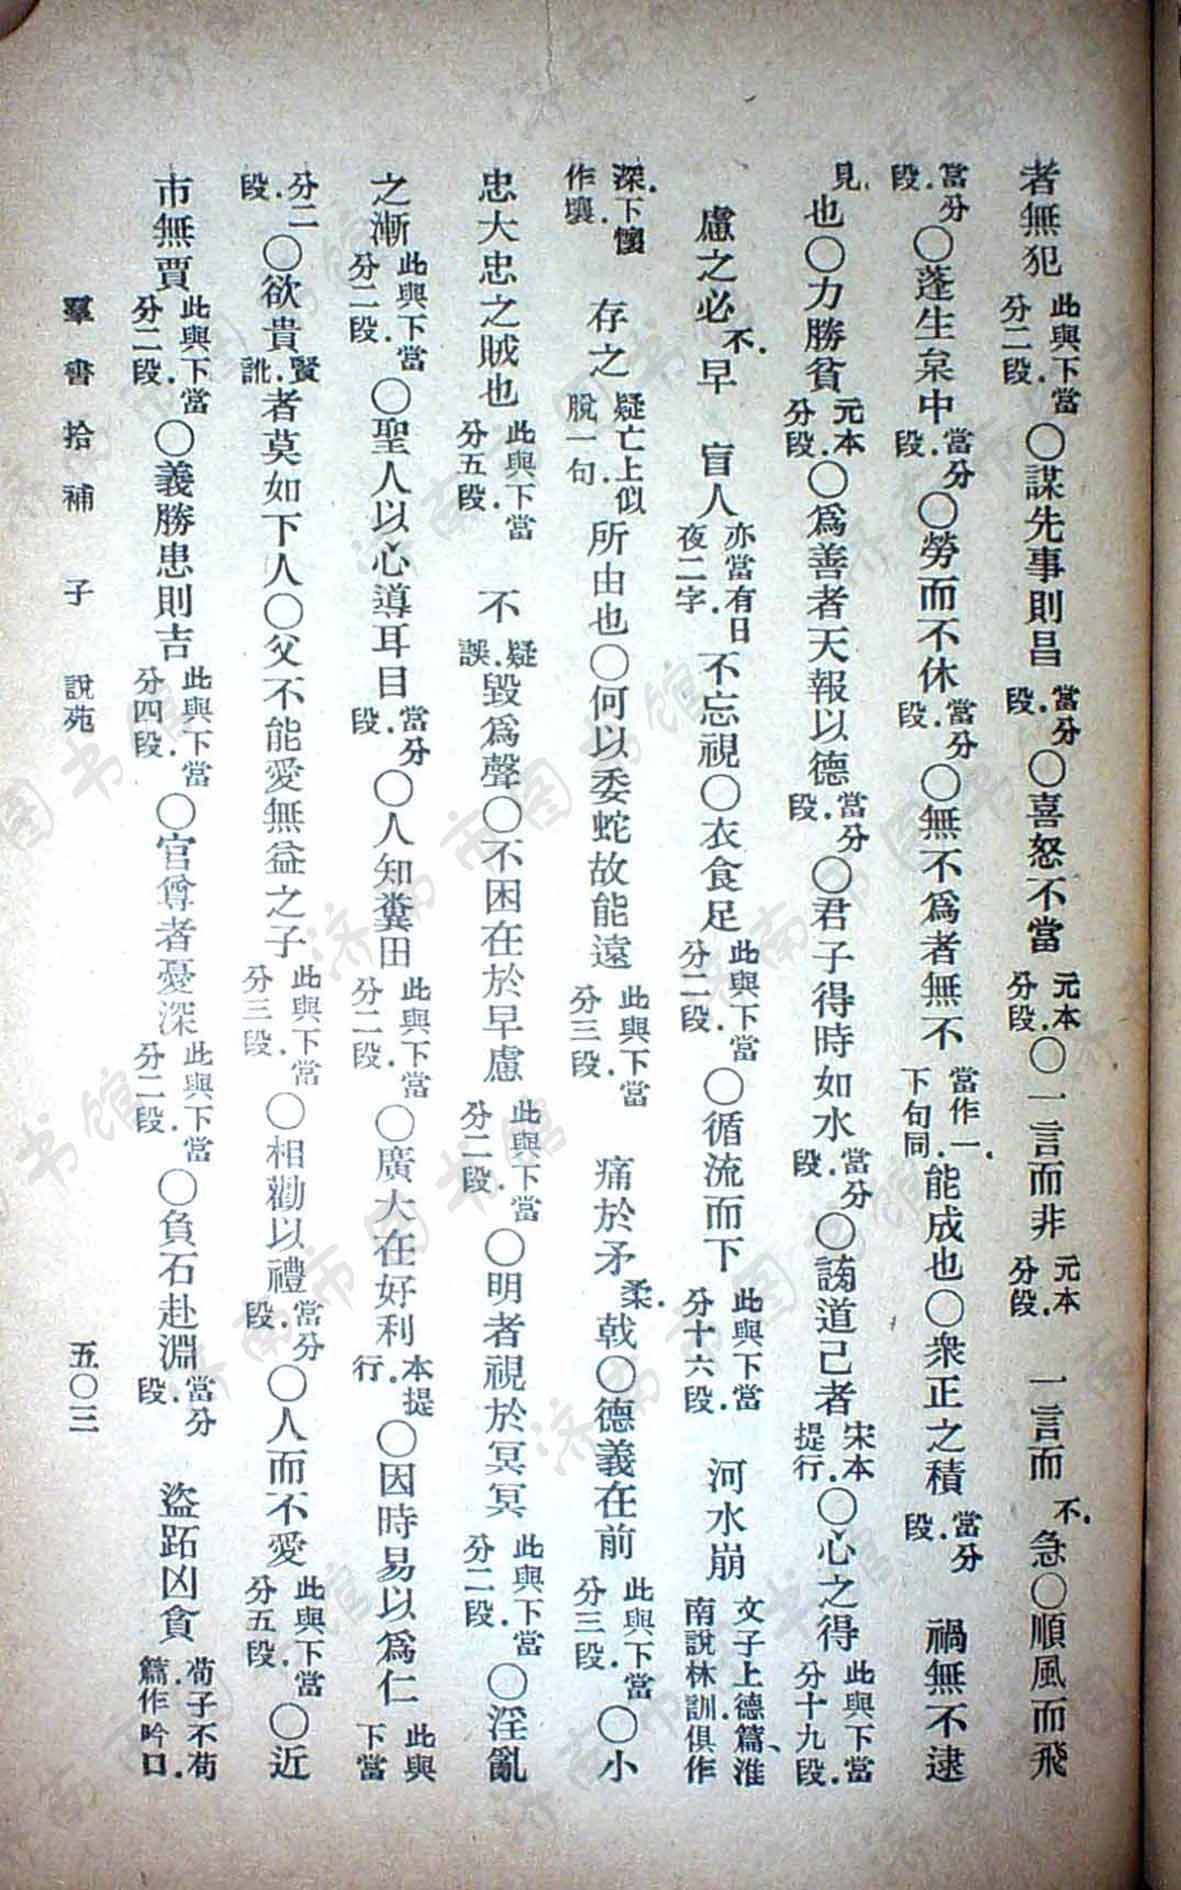 者無犯此與下當分二段.〇謀先事則昌當分段.〇喜怒不當元本分段.〇一言而非元本分段.　一言而不.急〇順風而飛
當分段.〇蓬生枲中當分段.〇勞而不休當分段.〇無不爲者無不當作一.下句同.能成也〇衆正之積當分段.　禍無不逮
也見.〇力勝貧元本分段.〇爲善者天報以德當分段.〇君子得時如水當分段.〇謗道己者宋本提行.〇心之得此與下當分十九段.
慮之必不.早　盲人亦當有日夜二字.不忘視〇衣食足此與下當分二段.〇循流而下此與下當分十六段.　河水崩文子上德篇、淮南說林訓.俱作
深.下懷作壤.　存之疑亡上似脫一句.所由也〇何以委蛇故能遠此與下當分三段.　痛於矛柔.戟〇德義在前此與下當分三段.〇小
忠大忠之賊也此與下當分五段.　不疑誤.毀爲聲〇不困在於早慮此與下當分二段.〇明者視於冥冥此與下當分二段.〇淫亂
之漸此與下當分二段.〇聖人以心導耳目當分段.〇人知糞田此與下當分二段.〇廣大在好利本提行.〇因時易以爲仁此與下當
分二段.〇欲貴賢訛.者莫如下人〇父不能愛無益之子此與下當分三段.〇相勸以禮當分段.〇人而不愛此與下當分五段.〇近
市無賈此與下當分二段.〇義勝患則吉此與下當分四段.〇官尊者憂深此與下當分二段.〇負石赴淵當分段.　盜跖凶貪荀子不苟篇作吟口.
羣書拾補　子　說苑　五〇三
济南市图书馆